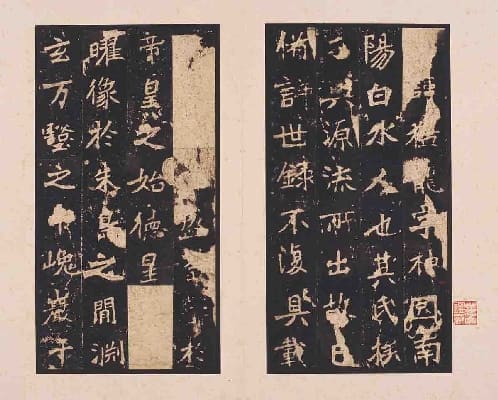 猛龍字神囧南
陽白水人也其氏族
源流所出故已
備詳世録不復具載
於
帝皇之始德星
曜像於朱鳥之間淵
玄万壑之中巉巖千